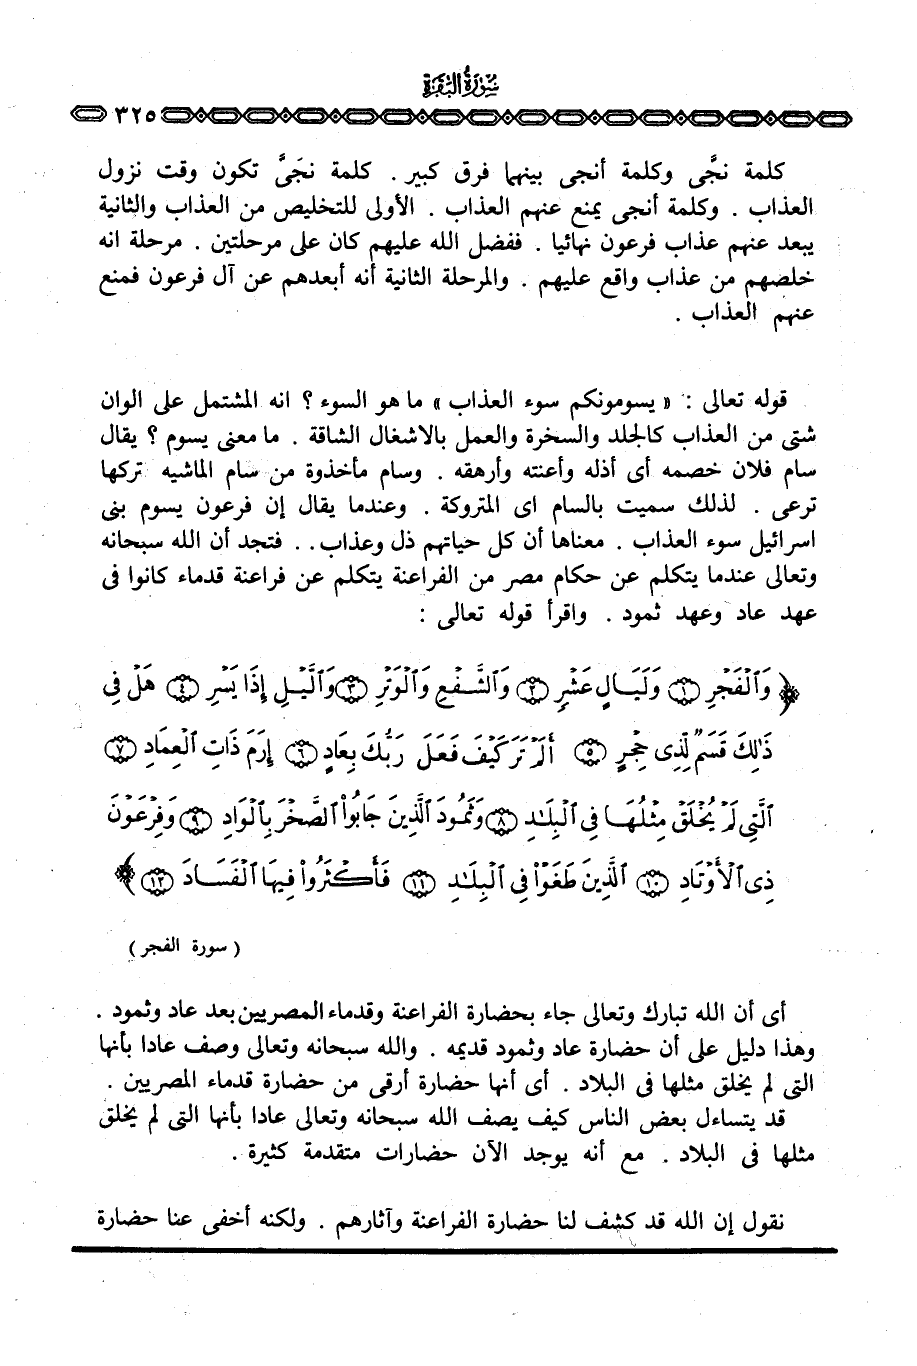 سُورَةُ البَقَرَة
٣٢٥
كلمة نجَّى وكلمة أنجى بينهما فرق كبير . كلمة نجَىَّ تكون وقت نزول
العذاب . وكلمة أنجى يمنع عنهم العذاب . الأولى للتخليص من العذاب والثانية
يبعد عنهم عذاب فرعون نهائيا . ففضل الله عليهم كان على مرحلتين . مرحلة انه
خلصهم من عذاب واقع عليهم . والمرحلة الثانية أنه أبعدهم عن آل فرعون فمنع
عنهم العذاب .
قوله تعالى : « يسومونكم سوء العذاب » ما هو السوء ؟ انه المشتمل على الوان
شتى من العذاب كالجلد والسخرة والعمل بالاشغال الشاقة . ما معنى يسوم ؟ يقال
سام فلان خصمه أى أذله وأعنته وأرهقه . وسام مأخذوة من سام الماشيه تركها
ترعى . لذلك سميت بالسام اى المتروكة . وعندما يقال إن فرعون يسوم بنى
اسرائيل سوء العذاب . معناها أن كل حياتهم ذل وعذاب.. فتجد أن الله سبحانه
وتعالى عندما يتكلم عن حكام مصر من الفراعنة يتكلم عن فراعنة قدماء كانوا فى
عهد عاد وعهد ثمود . واقرأ قوله تعالى :
﴿ وَٱلْفَجْرِ ١ وَلَيَالٍ عَشْرٍ ٢ وَٱلشَّفْعِ وَٱلْوَتْرِ ٣ وَٱلَّيْلِ إِذَا يَسْرِ ٤ هَلْ فِي
ذَٰلِكَ قَسَمٌ لِّذِى حِجْرٍ ٥ أَلَمْ تَرَ كَيْفَ فَعَلَ رَبُّكَ بِعَادٍ ٦ إِرَمَ ذَاتِ ٱلْعِمَادِ ٧
ٱلَّتِي لَمْ يُخْلَقْ مِثْلُهَا فِي ٱلْبِلَـٰدِ ٨ وَثَمُودَ ٱلَّذِينَ جَابُوا۟ ٱلصَّخْرَ بِٱلْوَادِ ٩ وَفِرْعَوْنَ
ذِى ٱلْأَوْتَادِ ١٠ ٱلَّذِينَ طَغَوْا۟ فِي ٱلْبِلَـٰدِ ١١ فَأَكْثَرُوا۟ فِيهَا ٱلْفَسَادَ ١٢ ﴾
( سورة الفجر )
أى أن الله تبارك وتعالى جاء بحضارة الفراعنة وقدماء المصريين بعد عاد وثمود .
وهذا دليل على أن حضارة عاد وثمود قديمه . والله سبحانه وتعالى وصف عادا بأنها
التى لم يخلق مثلها فى البلاد . أى أنها حضارة أرقى من حضارة قدماء المصريين .
قد يتساءل بعض الناس كيف يصف الله سبحانه وتعالى عادا بأنها التى لم يخلق
مثلها فى البلاد . مع أنه يوجد الآن حضارات متقدمة كثيرة .
نقول إن الله قد كشف لنا حضارة الفراعنة وآثارهم . ولكنه أخفى عنا حضارة